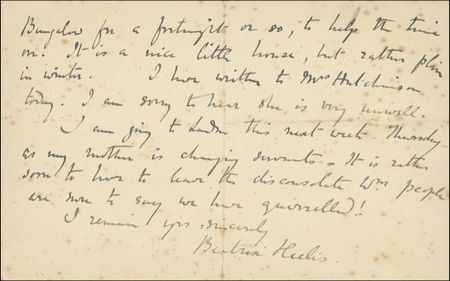 Bungalow for a fortnight or so, to help the time
on. It is a nice little house, but rather plain
in winter. I have written to Mrs Hutchinson
today. I am sorry to hear she is very unwell.
I am going to London this next week - Thursday
as my mother is changing servants. It is rather
soon to have to leave the disconsolate Wm people
are sure to say we have quarrelled!
I remain yrs sincerely
Beatrix Heelis.